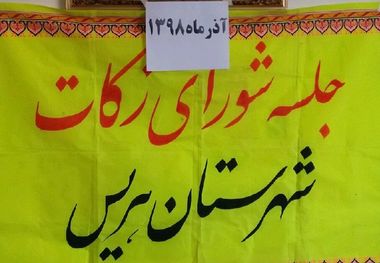 آذر ماه ۱۳۹۸
جلسه شورای زکات
شهرستان هریس